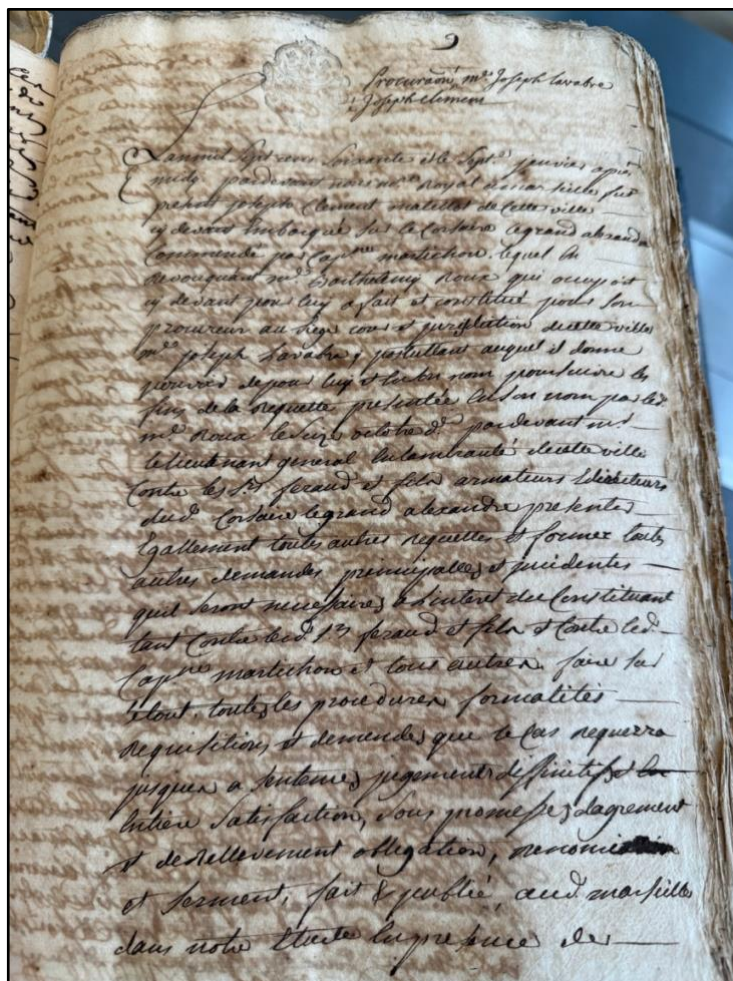 2
Procuraon, me Joseph Lavabre
a Joseph Clement
Lan mil sept cens soixante et le sept janvier apres
midy pardevant nous nore royal a marseille fut
present Joseph Clement matellot de cette ville
cy devant embarqué sur le corsaire legrand alexandre
commandé par cape martichon lequel en
revoucquant me Barthelemy Roux qui occupoit
cy devant pour luy a fait et constitué pour son
procureur au siege cour et juridiction decette ville
me Joseph Lavabre y postullant auquel il donne
pouvoir de pour luy et en son nom poursuivre les
fins de la requette presentée en son nom par led.
me Roux le octobre dr pardevant mr
le lieutenant general en lamirauté decette ville
Contre les srs feraud et fils armateurs directeurs
dud. Corsaire legrand alexandre presenter
Egallement toutes autres requettes et former toutes
autres demandes principalles et incidentes
quil seront necessaires a linteret du Constituant
tant Contre lesd. srs feraud et fils et Contre led.
Cape martichon et tous autres faire sur
letout, toutes les procedures formalités
requisitions et demendes que le cas requerra
jusques a sentences jugements diffinitifs et
Entiere satisfaction, sous promesses dagrement
et derellevement obligation, renonciation
et serment, fait & publié aud. marseille
dans notre Etude en presence de